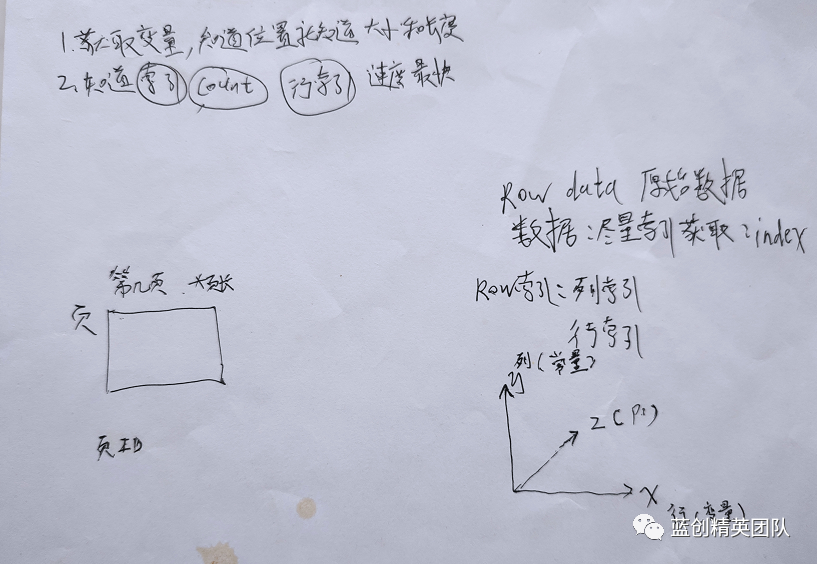 1.获取变量,知道位置就知道大小和长度
2、知道索引 count 行索引 速度最快
Row data 原始数据
数据:尽量索引获取:index
Row索引:列索引
行索引
第几页
页
页
列(常量)
y
Z(Pi)
X
行(变量)
蓝创精英团队